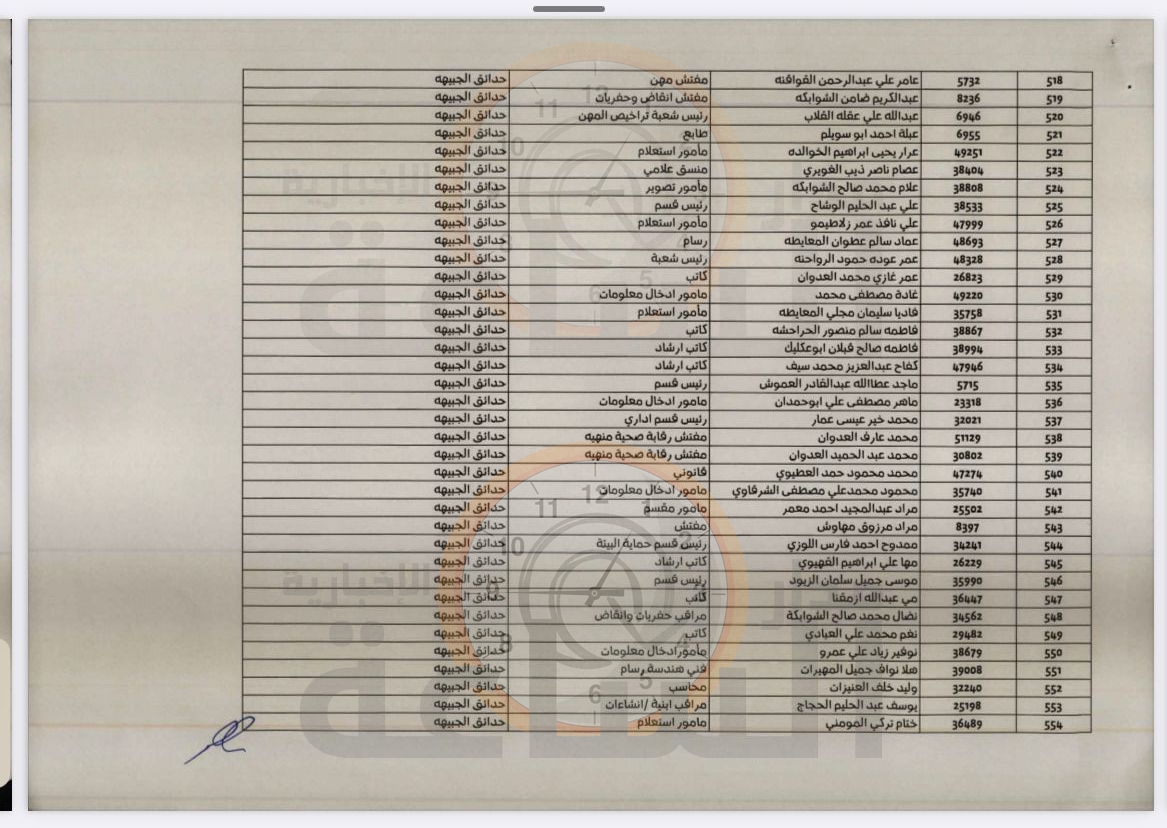 518 5732 عامر علي عبدالرحمن القواقنه مفتش مهن حدائق الجبيهه
519 8236 عبدالكريم ضامن الشوابكه مفتش انقاض وحفريات حدائق الجبيهه
520 6946 عبدالله علي عقله القلاب رئيس شعبة تراخيص المهن حدائق الجبيهه
521 6955 عبلة احمد ابو سويلم طابع حدائق الجبيهه
522 49251 عرار يحيى ابراهيم الخوالده مأمور استعلام حدائق الجبيهه
523 38404 عصام ناصر ذيب الغويري منسق علامي حدائق الجبيهه
524 38808 علام محمد صالح الشوابكه مأمور تصوير حدائق الجبيهه
525 38533 علي عبد الحليم الوشاح رئيس قسم حدائق الجبيهه
526 47999 علي نافذ عمر زلاطيمو مأمور استعلام حدائق الجبيهه
527 48693 عماد سالم عطوان المعايطه رسام حدائق الجبيهه
528 48328 عمر عوده حمود الرواحنه رئيس شعبة حدائق الجبيهه
529 26823 عمر غازي محمد العدوان كاتب حدائق الجبيهه
530 49220 غادة مصطفى محمد مامور ادخال معلومات حدائق الجبيهه
531 35758 فاديا سليمان مجلي المعايطه مأمور استعلام حدائق الجبيهه
532 38867 فاطمه سالم منصور الحراحشه كاتب حدائق الجبيهه
533 38994 فاطمه صالح قبلان ابوعكليك كاتب ارشاد حدائق الجبيهه
534 47946 كفاح عبدالعزيز محمد سيف كاتب ارشاد حدائق الجبيهه
535 5715 ماجد عطاالله عبدالقادر العموش رئيس قسم حدائق الجبيهه
536 23318 ماهر مصطفى علي ابوحمدان مامور ادخال معلومات حدائق الجبيهه
537 32021 محمد خير عيسى عمار رئيس قسم اداري حدائق الجبيهه
538 51129 محمد عارف العدوان مفتش رقابة صحية منهيه حدائق الجبيهه
539 30802 محمد عبد الحميد العدوان مفتش رقابة صحية منهيه حدائق الجبيهه
540 47274 محمد محمود حمد العطيوي قانوني حدائق الجبيهه
541 35740 محمود محمدعلي مصطفى الشرقاوي مامور ادخال معلومات حدائق الجبيهه
542 25502 مراد عبدالمجيد احمد معمر مأمور مقسم حدائق الجبيهه
543 8397 مراد مرزوق مهاوش مفتش حدائق الجبيهه
544 34241 ممدوح احمد فارس اللوزي رئيس قسم حماية البيئة حدائق الجبيهه
545 26229 مها علي ابراهيم القهيوي كاتب ارشاد حدائق الجبيهه
546 35990 موسى جميل سلمان الزيود رئيس قسم حدائق الجبيهه
547 36447 مي عبدالله ازمقنا كاتب حدائق الجبيهه
548 34562 نضال محمد صالح الشوابكة مراقب حفريات وانقاض حدائق الجبيهه
549 29482 نغم محمد علي العبادي كاتب حدائق الجبيهه
550 38679 نوفير زياد علي عمرو مأمورادخال معلومات حدائق الجبيهه
551 39008 هلا نواف جميل المهيرات فني هندسة رسام حدائق الجبيهه
552 32240 وليد خلف العنيزات محاسب حدائق الجبيهه
553 25198 يوسف عبد الحليم الحجاج مراقب ابنية /انشاءات حدائق الجبيهه
554 36489 ختام تركي المومني مامور استعلام حدائق الجبيهه